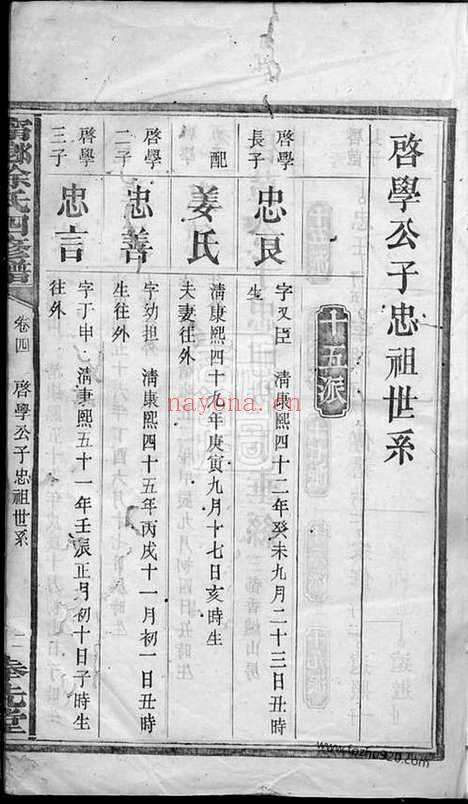 啓學公子忠祖世系
十五派
啓學
長子
忠良
字叉臣 淸康熙四十二年癸未九月二十三日丑時
生
配
姜氏
淸康熙四十九年庚寅九月十七日亥時生
夫妻往外
啓學
二子
忠善
字効担 淸康熙四十五年丙戌十一月初一日丑時
生往外
啓學
三子
忠言
字丁申 淸康熙五十一年壬辰正月初十日子時生
往外
氏四修譜
卷四
啓學公子忠祖世系
堂
nayona.cn
www.fozhu920.com